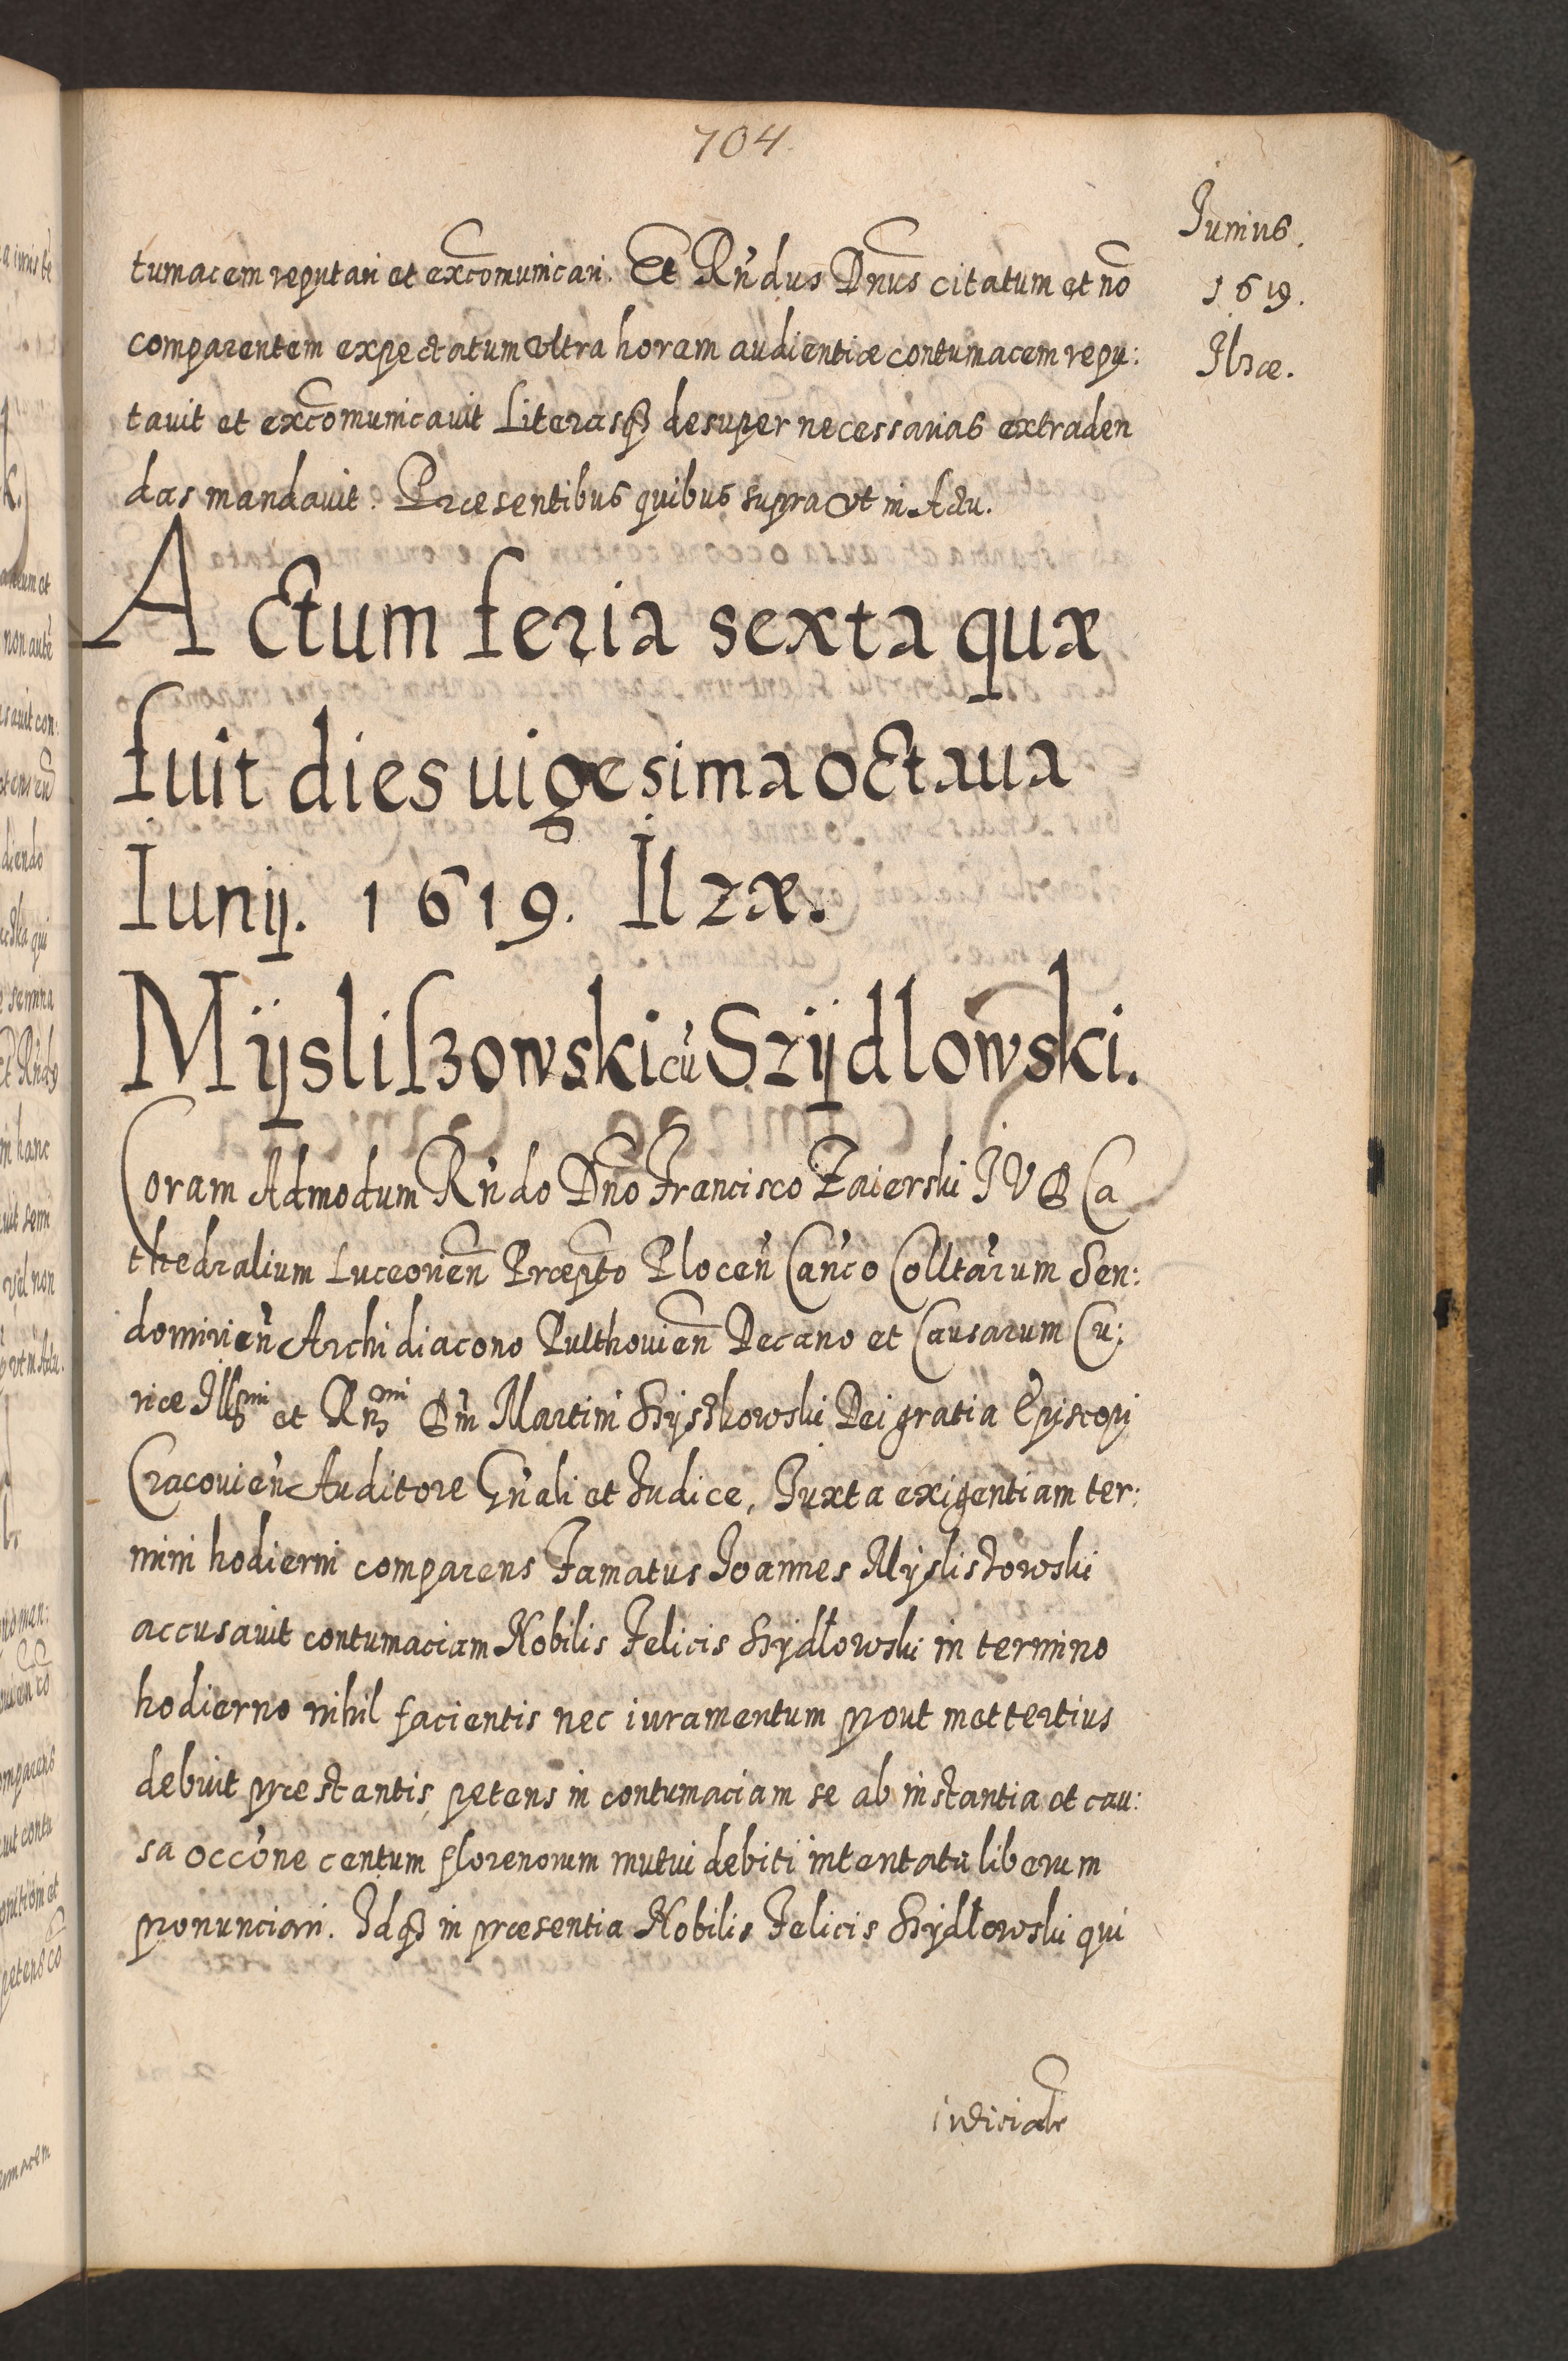 704
Junius.
1619.
Ilzæ.
tumacem reputari et excomunicari. Et Rñdus Dnus citatum et nō
comparentem expectatum vltra horam audientiæ contumacem repu:
tauit et excomunicauit Literasq3 desuper necessarias extraden
das mandauit. Præsentibus quibus supra vt in Actu.
Actum feria sexta quæ
fuit dies uigesima octaua
Iunij. 1619. Ilzæ.
Mÿsliszowski cū Szÿdlowski.
Coram Admodum Rñdo Dno Francisco Zaierski JVD Ca
thedralium Luceorien Præpto Plocen Canco Colltarum Sen:
domirien Archidiacono Pulthouien Decano et Causarum Cu:
riæ Illmi et Rmi Dni Martini Szyszkowski Dei gratia Episcopi
Cracouien Auditore Gnali et Judice, Juxta exigentiam ter:
mini hodierni comparens Famatus Joannes Mysliszowski
accusauit contumaciam Nobilis Felicis Szydłowski in termino
hodierno nihil facientis nec iuramentum prout mettertius
debuit præstantis, petens in contumaciam se ab instantia et cau:
sa occone centum florenorum mutui debiti intentata liberum
pronunciari. Idq3 in præsentia Nobilis Felicis Szydłowski qui
iudicialr